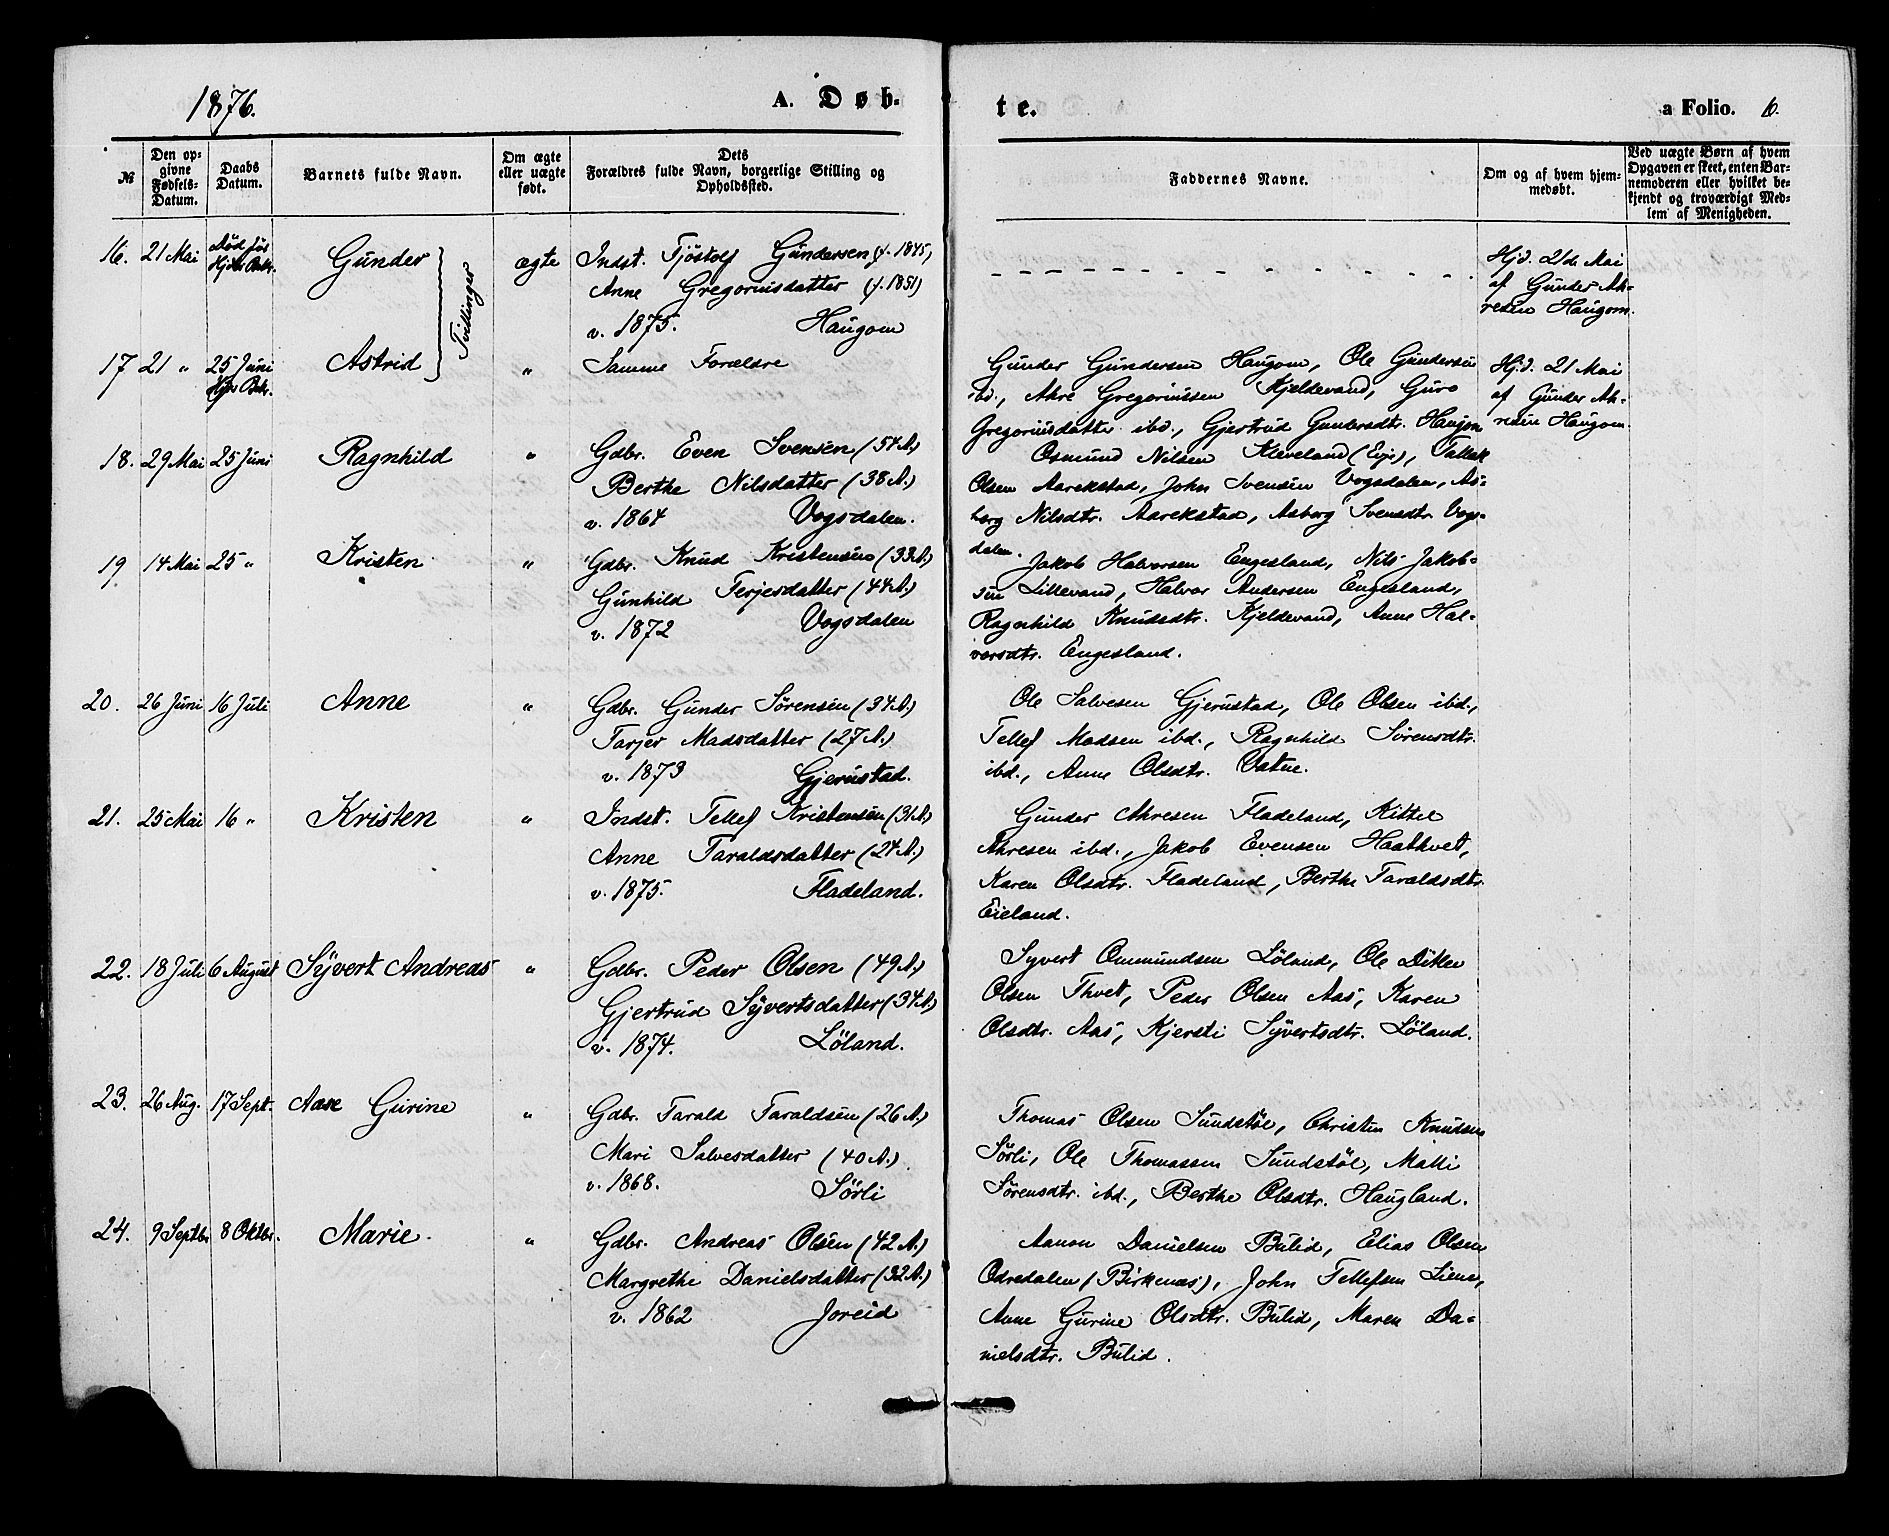 1876.
A. Døb-
te.
a Folio. 6.
№
Den op-
givne
Fødsels-
Datum.
Daabs
Datum.
Barnets fulde Navn.
Om ægte
eller uægte
født.
Dets
Forældres fulde Navn, borgerlige Stilling og
Opholdssted.
Faddernes Navne.
Om og af hvem hjem-
medøbt.
Ved uægte Børn af hvem
Opgaven er skeet, enten Bar-
nemoderen eller hvilket be-
kjendt og troværdigt Med-
lem af Menigheden.
16. 21 Mai Død før Gunder ægte Indst. Tjöstolf Gundersen (f. 1845)
Anne Gregoriusdatter (f. 1851)
v. 1875. Haugom
Tvillinger
Hjd. 21de Mai
af Gunder Ah-
resen Haugom.
17 21 " 25 Juni Astrid " Samme Forældre
Gunder Gundersen Haugom, Ole Gundersen
ibd., Ahre Gregoriussen Kjeldevand, Guro
Gregoriusdatter ibd., Gjertrud Gundersdtr. Haugom
Hjd. 21 Mai
af Gunder Ah-
resen Haugom.
18. 29 Mai 25 Juni Ragnhild " Gdbr. Even Svensen (54 A.)
Berthe Nilsdatter (38 A.)
v. 1864 Vogsdalen.
Osmund Nilsen Kleveland (Evje), Tallak
Olsen Aarekstad, John Svensen Vogsdalen, As-
borg Nilsdtr. Aarekstad, Asborg Svensdtr. Vogs-
dalen.
19 14 Mai 25 " Kristen " Gdbr. Knud Kristensen (33 A.)
Gunhild Terjesdatter (44 A.)
v. 1872 Vogsdalen
Jakob Halvorsen Engesland, Nils Jakob-
sen Lillevand, Halvor Andersen Engesland,
Ragnhild Knudsdtr. Kjeldevand, Anne Hal-
vorsdtr. Engesland.
20. 26 Juni 16 Juli Anne " Gdbr. Gunder Sörensen (34 A.)
Tarjer Madsdatter (27 A.)
v. 1873 Gjerustad.
Ole Salvesen Gjerustad, Ole Olsen ibd.,
Tellef Madsen ibd., Ragnhild Sörensdtr.
ibd., Anne Olsdtr. Vatne.
21. 25 Mai 16 " Kristen " Indst. Tellef Kristensen (31 A.)
Anne Taraldsdatter (24 A.)
v. 1875. Fladeland.
Gunder Ahresen Fladeland, Kittel
Ahresen ibd., Jakob Evensen Haathvet,
Karen Olsdtr. Fladeland, Berthe Taraldsdtr.
Eieland.
22. 18 Juli 6 August Syvert Andreas " Gdbr. Peder Olsen (49 A.)
Gjertrud Syvertsdatter (34 A.)
v. 1874. Löland.
Syvert Ommundsen Löland, Ole Ditlev
Olsen Thvet, Peder Olsen Aas, Karen
Olsdtr. Aas, Kjersti Syvertsdtr. Löland.
23. 26 Aug. 17 Sept. Aase Gurine " Gdbr. Tarald Taraldsen (26 A.)
Mari Salvesdatter (40 A.)
v. 1868. Sörli
Thomas Olsen Sundstöl, Christen Knudsen
Sörli, Ole Thomassen Sundstöl, Malli
Sörensdtr. ibd., Berthe Olsdtr. Haugland.
24. 9 Septbr 8 Oktbr. Marie " Gdbr. Andreas Olsen (42 A.)
Margrethe Danielsdatter (32 A.)
v. 1862 Joreid
Aanon Danielsen Bulid, Elias Olsen
Odredalen (Birkenæs), John Tellefsen Liene,
Anne Gurine Olsdtr. Bulid, Maren Da-
nielsdtr. Bulid.